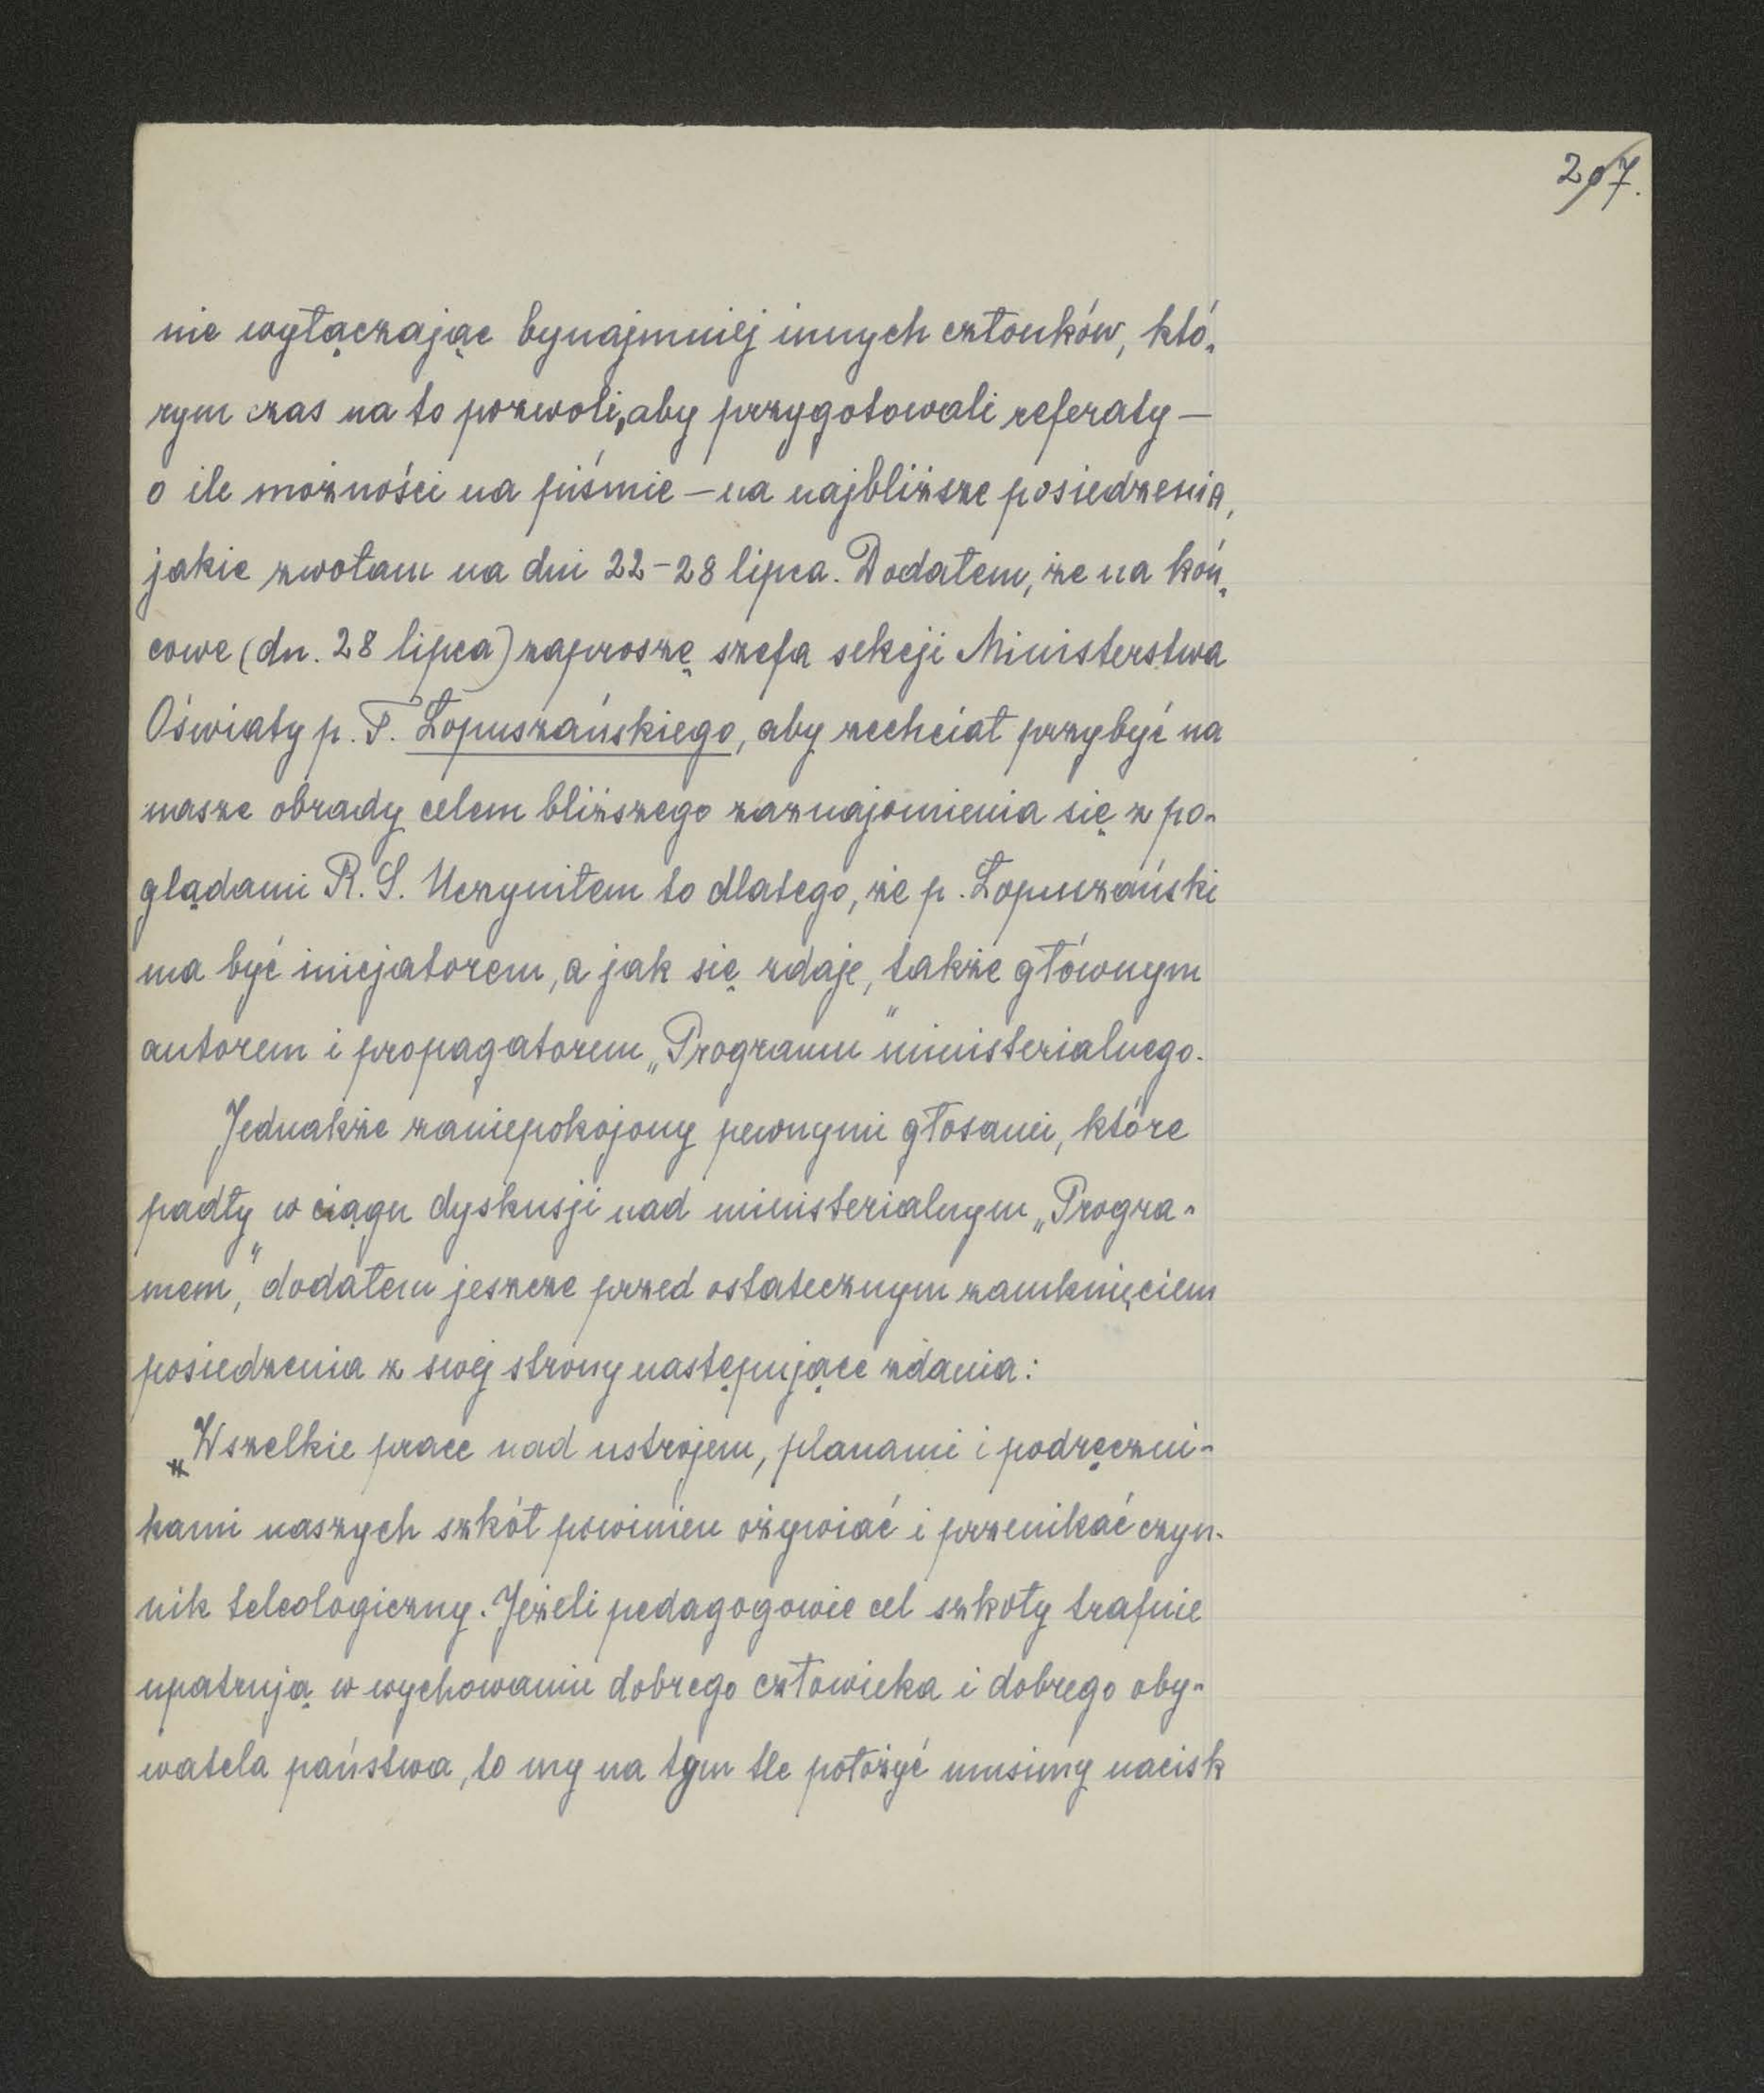 207.
nie wyłączając bynajmniej innych członków, któ-
rym czas na to pozwoli, aby przygotowali referaty —
o ile możności na piśmie — na najbliższe posiedzenia,
jakie zwołam na dni 22-28 lipca. Dodałem, że na koń-
cowe (dn. 28 lipca) zaproszę szefa sekcji Ministerstwa
Oświaty p. T. Łopuszańskiego, aby zechciał przybyć na
nasze obrady celem bliższego zaznajomienia się z po-
glądami R. S. Uczyniłem to dlatego, że p. Łopuszański
ma być inicjatorem, a jak się zdaje, także głównym
autorem i propagatorem „Programu" ministerialnego.
Jednakże zaniepokojony pewnymi głosami, które
padły w ciągu dyskusji nad ministerialnym „Progra-
mem", dodałem jeszcze przed ostatecznym zamknięciem
posiedzenia z swej strony następujące zdania:
„Wszelkie prace nad ustrojem, planami i podręczni-
kami naszych szkół powinien ożywiać i przenikać czyn-
nik teleologiczny. Jeżeli pedagogowie cel szkoły trafnie
upatrują w wychowaniu dobrego człowieka i dobrego oby-
watela państwa, to my na tym tle położyć musimy nacisk